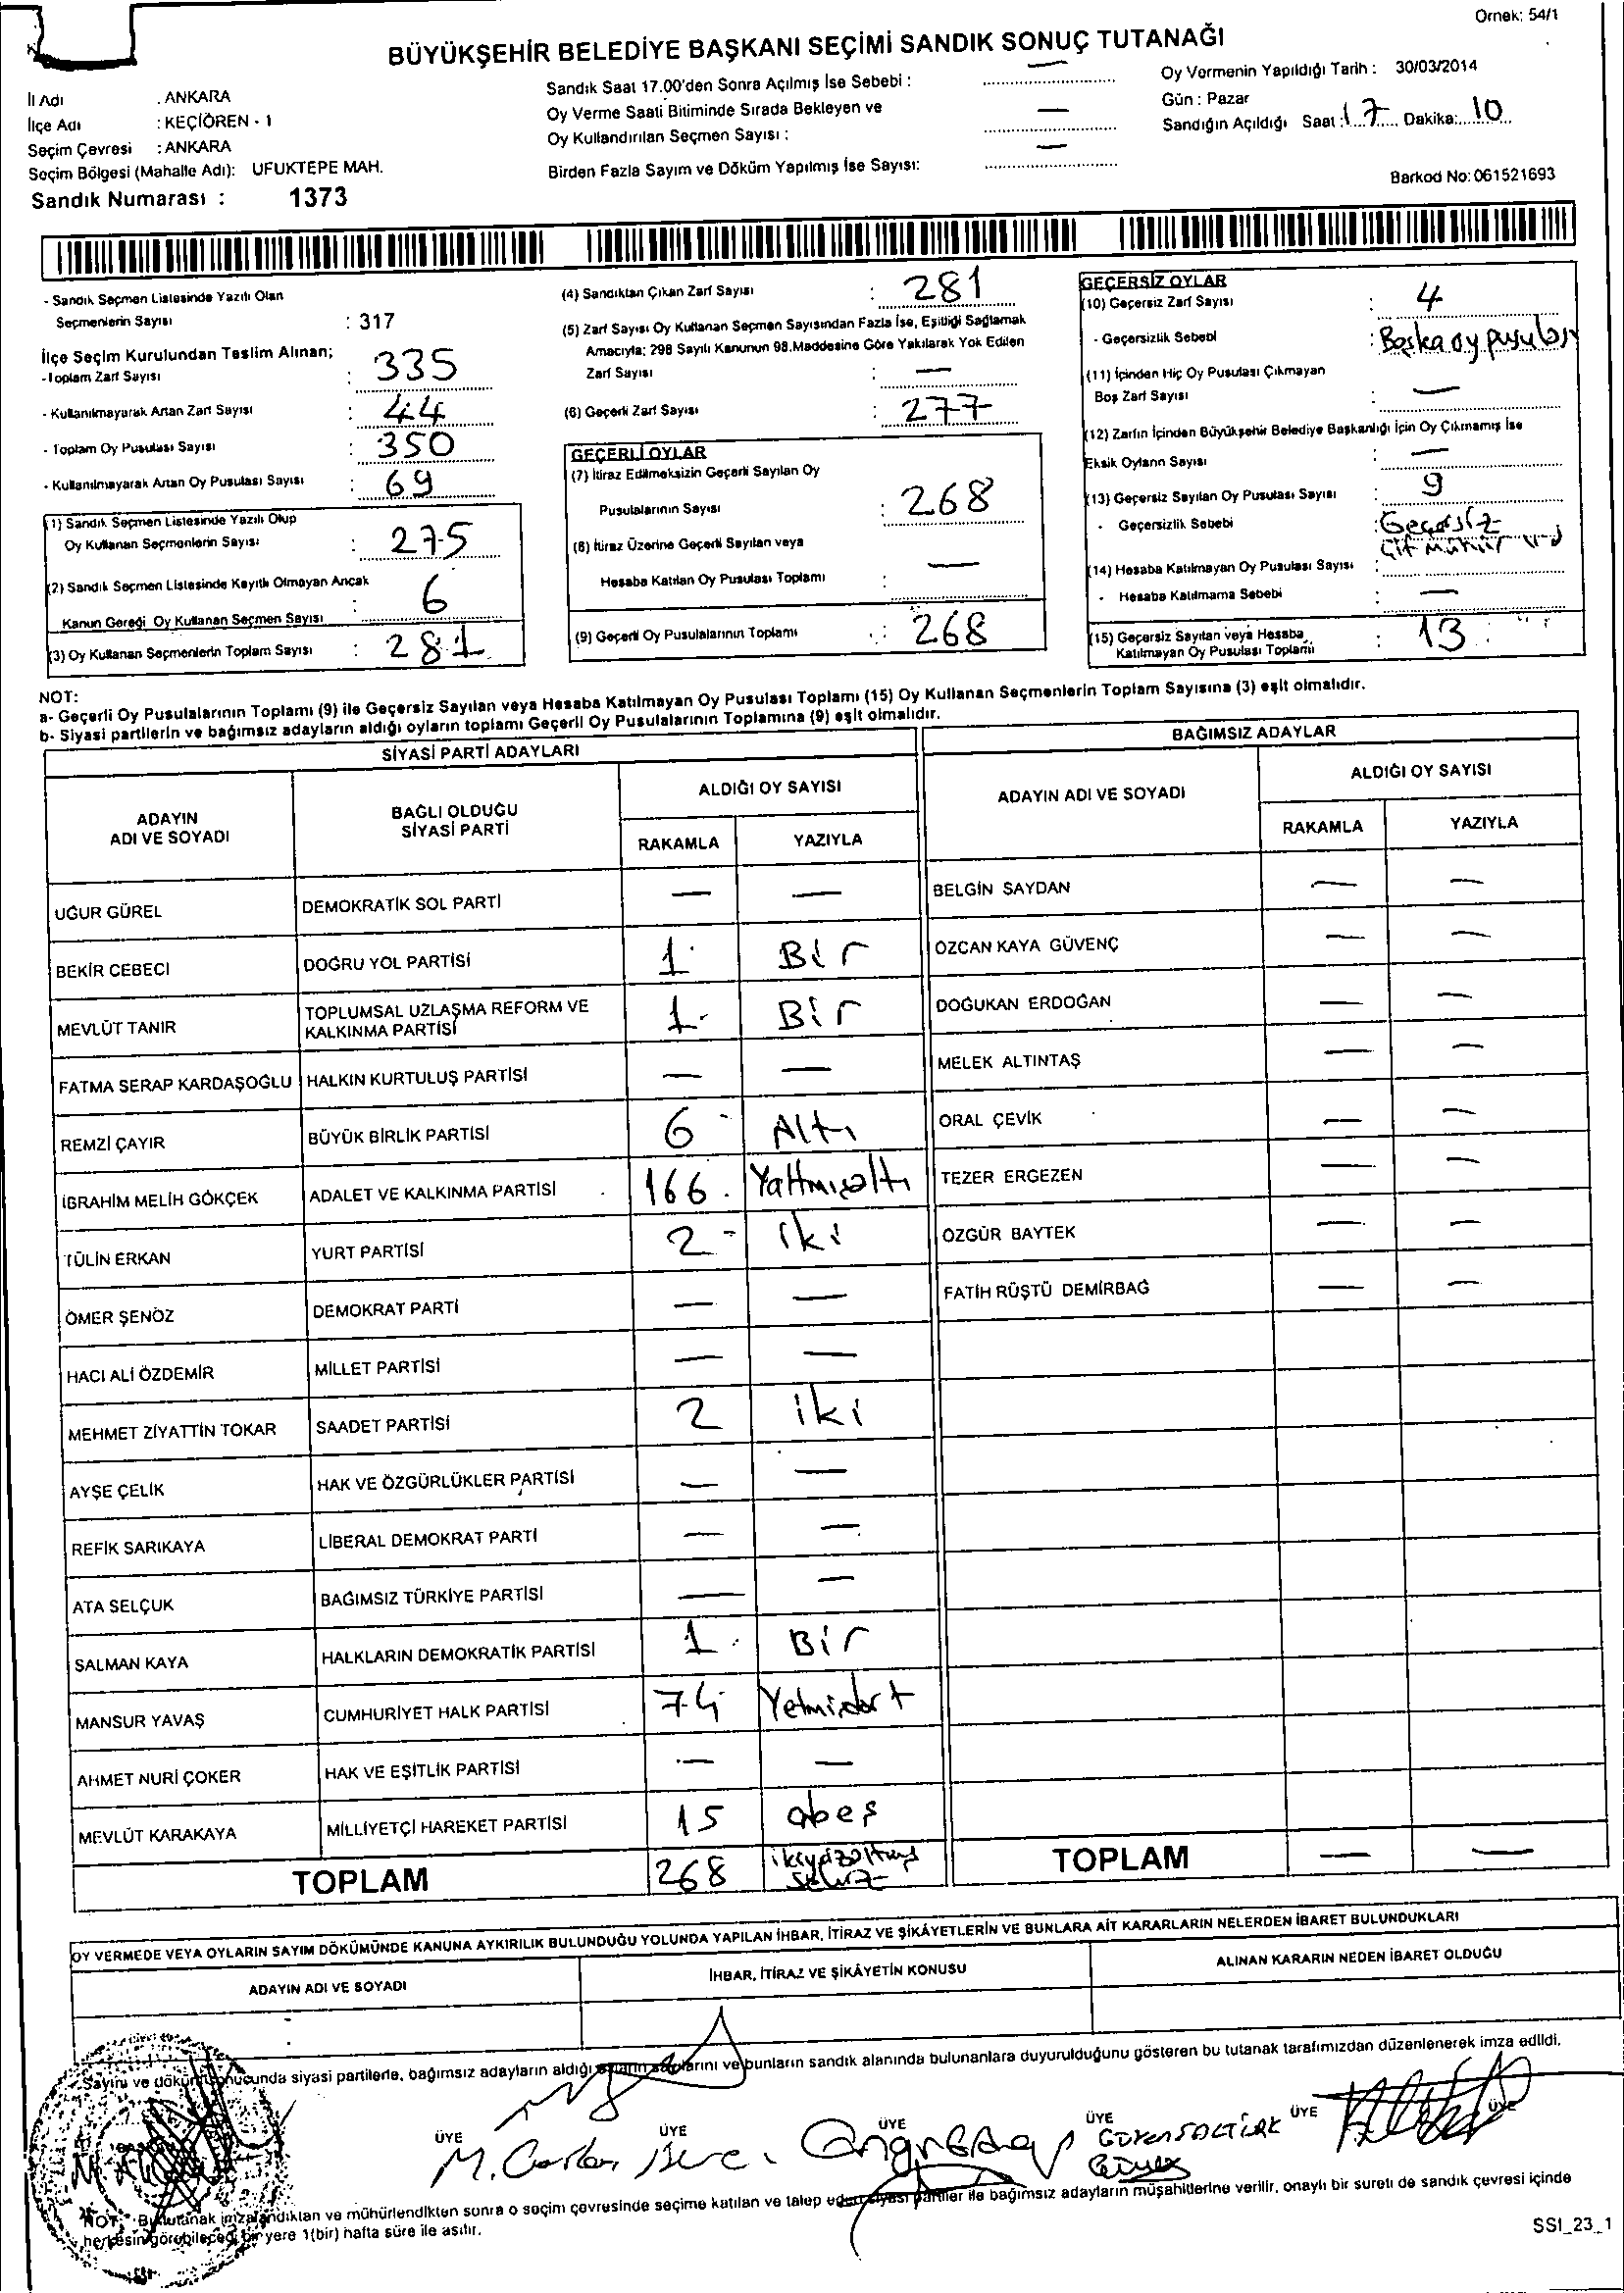 Örnek: 54/1
BÜYÜKŞEHİR BELEDİYE BAŞKANI SEÇİMİ SANDIK SONUÇ TUTANAĞI
İl Adı : ANKARA
İlçe Adı : KEÇİÖREN - 1
Seçim Çevresi : ANKARA
Seçim Bölgesi (Mahalle Adı): UFUKTEPE MAH.
Sandık Numarası : 1373
Sandık Saat 17.00'den Sonra Açılmış İse Sebebi : —
Oy Verme Saati Bitiminde Sırada Bekleyen ve
Oy Kullandırılan Seçmen Sayısı : —
Birden Fazla Sayım ve Döküm Yapılmış İse Sayısı: —
Oy Vermenin Yapıldığı Tarih : 30/03/2014
Gün : Pazar
Sandığın Açıldığı Saat : 17 Dakika: 10
Barkod No: 061521693
- Sandık Seçmen Listesinde Yazılı Olan
Seçmenlerin Sayısı : 317
İlçe Seçim Kurulundan Teslim Alınan;
- Toplam Zarf Sayısı : 335
- Kullanılmayarak Artan Zarf Sayısı : 44
- Toplam Oy Pusulası Sayısı : 350
- Kullanılmayarak Artan Oy Pusulası Sayısı : 69
(1) Sandık Seçmen Listesinde Yazılı Olup
Oy Kullanan Seçmenlerin Sayısı : 275
(2) Sandık Seçmen Listesinde Kayıtlı Olmayan Ancak
Kanun Gereği Oy Kullanan Seçmen Sayısı : 6
(3) Oy Kullanan Seçmenlerin Toplam Sayısı : 281
(4) Sandıktan Çıkan Zarf Sayısı : 281
(5) Zarf Sayısı Oy Kullanan Seçmen Sayısından Fazla İse, Eşitliği Sağlamak
Amacıyla; 298 Sayılı Kanunun 98.Maddesine Göre Yakılarak Yok Edilen
Zarf Sayısı : —
(6) Geçerli Zarf Sayısı : 277
GEÇERLİ OYLAR
(7) İtiraz Edilmeksizin Geçerli Sayılan Oy
Pusulalarının Sayısı : 268
(8) İtiraz Üzerine Geçerli Sayılan veya
Hesaba Katılan Oy Pusulası Toplamı : —
(9) Geçerli Oy Pusulalarının Toplamı : 268
GEÇERSİZ OYLAR
(10) Geçersiz Zarf Sayısı : 4
- Geçersizlik Sebebi : Başka oy pusulası
(11) İçinden Hiç Oy Pusulası Çıkmayan
Boş Zarf Sayısı : —
(12) Zarfın İçinden Büyükşehir Belediye Başkanlığı İçin Oy Çıkmamış İse
Eksik Oyların Sayısı : —
(13) Geçersiz Sayılan Oy Pusulası Sayısı : 9
- Geçersizlik Sebebi : Geçersiz
Çift mühür
(14) Hesaba Katılmayan Oy Pusulası Sayısı :
- Hesaba Katılmama Sebebi : —
(15) Geçersiz Sayılan veya Hesaba
Katılmayan Oy Pusulası Toplamı : 13
NOT:
a- Geçerli Oy Pusulalarının Toplamı (9) ile Geçersiz Sayılan veya Hesaba Katılmayan Oy Pusulası Toplamı (15) Oy Kullanan Seçmenlerin Toplam Sayısına (3) eşit olmalıdır.
b- Siyasi partilerin ve bağımsız adayların aldığı oyların toplamı Geçerli Oy Pusulalarının Toplamına (9) eşit olmalıdır.
SİYASİ PARTİ ADAYLARI
ADAYIN ADI VE SOYADI BAĞLI OLDUĞU SİYASİ PARTİ ALDIĞI OY SAYISI
RAKAMLA YAZIYLA
UĞUR GÜREL DEMOKRATİK SOL PARTİ — —
BEKİR CEBECİ DOĞRU YOL PARTİSİ 1 Bir
MEVLÜT TANIR TOPLUMSAL UZLAŞMA REFORM VE KALKINMA PARTİSİ 1 Bir
FATMA SERAP KARDAŞOĞLU HALKIN KURTULUŞ PARTİSİ — —
REMZİ ÇAYIR BÜYÜK BİRLİK PARTİSİ 6 Altı
İBRAHİM MELİH GÖKÇEK ADALET VE KALKINMA PARTİSİ 166 Yatmışaltı
TÜLİN ERKAN YURT PARTİSİ 2 iki
ÖMER ŞENÖZ DEMOKRAT PARTİ — —
HACI ALİ ÖZDEMİR MİLLET PARTİSİ — —
MEHMET ZİYATTİN TOKAR SAADET PARTİSİ 2 iki
AYŞE ÇELİK HAK VE ÖZGÜRLÜKLER PARTİSİ — —
REFİK SARIKAYA LİBERAL DEMOKRAT PARTİ — —
ATA SELÇUK BAĞIMSIZ TÜRKİYE PARTİSİ — —
SALMAN KAYA HALKLARIN DEMOKRATİK PARTİSİ 1 Bir
MANSUR YAVAŞ CUMHURİYET HALK PARTİSİ 74 Yetmişdört
AHMET NURİ ÇOKER HAK VE EŞİTLİK PARTİSİ — —
MEVLÜT KARAKAYA MİLLİYETÇİ HAREKET PARTİSİ 15 onbeş
TOPLAM 268 ikiyüzaltmış sekiz
BAĞIMSIZ ADAYLAR
ADAYIN ADI VE SOYADI ALDIĞI OY SAYISI
RAKAMLA YAZIYLA
BELGİN SAYDAN — —
ÖZCAN KAYA GÜVENÇ — —
DOĞUKAN ERDOĞAN — —
MELEK ALTINTAŞ — —
ORAL ÇEVİK — —
TEZER ERGEZEN — —
ÖZGÜR BAYTEK — —
FATİH RÜŞTÜ DEMİRBAĞ — —
TOPLAM — —
OY VERMEDE VEYA OYLARIN SAYIM DÖKÜMÜNDE KANUNA AYKIRILIK BULUNDUĞU YOLUNDA YAPILAN İHBAR, İTİRAZ VE ŞİKÂYETLERİN VE BUNLARA AİT KARARLARIN NELERDEN İBARET BULUNDUKLARI
ADAYIN ADI VE SOYADI İHBAR, İTİRAZ VE ŞİKÂYETİN KONUSU ALINAN KARARIN NEDEN İBARET OLDUĞU
Sayım ve döküm sonucunda siyasi partilerle, bağımsız adayların aldığı oyların sayılarını ve bunların sandık alanında bulunanlara duyurulduğunu gösteren bu tutanak tarafımızdan düzenlenerek imza edildi.
ÜYE ÜYE ÜYE ÜYE ÜYE ÜYE
NOT: Bu tutanak imzalandıktan ve mühürlendikten sonra o seçim çevresinde seçime katılan ve talep eden siyasi partiler ile bağımsız adayların müşahitlerine verilir, onaylı bir sureti de sandık çevresi içinde
herkesin görebileceği bir yere 1(bir) hafta süre ile asılır.
SSI_23_1